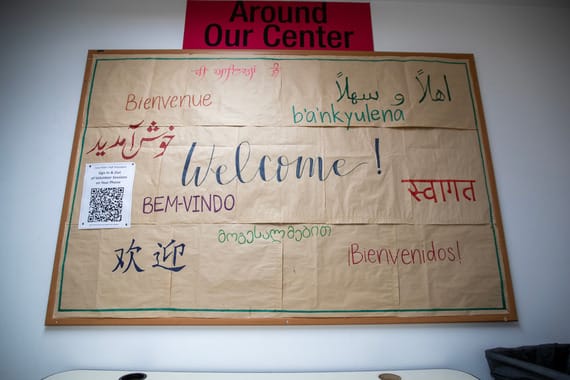 Around
Our Center
Bienvenue
اهلاً و سهلاً
b'a'nkyulena
خوش آمدید
Welcome!
Sign In & Out
of Volunteer Sessions
on Your Phone
स्वागत
BEM-VINDO
მოგესალმებით
欢迎
¡Bienvenidos!